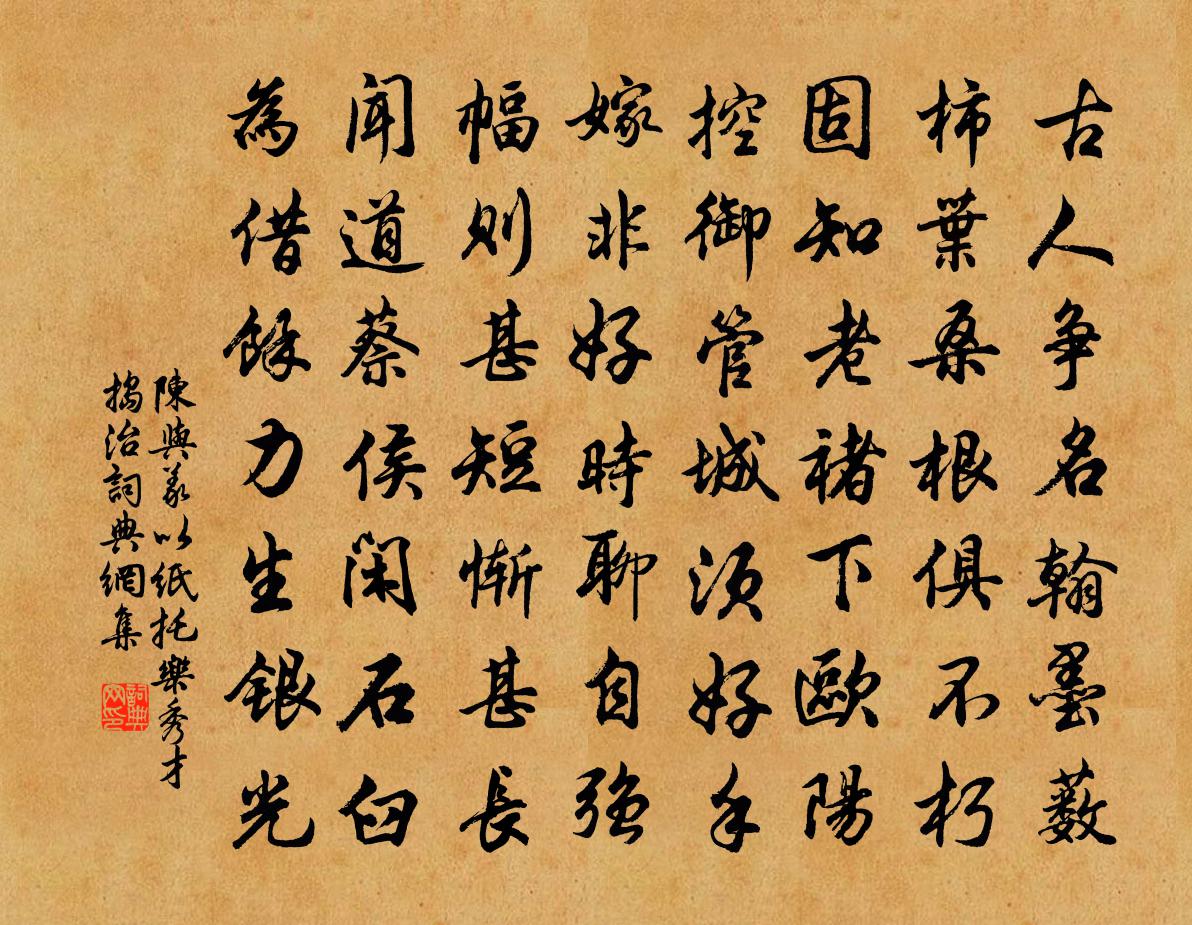 古人爭名翰墨藪
柿葉桑根俱不朽
固知老褚下歐陽
控御管城須好手
嫁非好時聊自強
幅則甚短慚甚長
聞道蔡侯閑石臼
為借餘力生銀光
陳與義以紙托樂秀才
搗治詞典網集
詞典网印